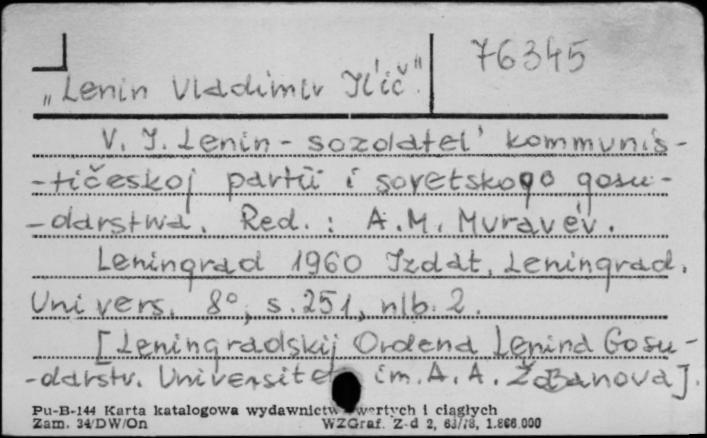 76345
„Lenin Vladimir Il'ič".
V. I. Lenin - sozdatel' kommunis-
-tičeskoj partii i sovetskogo gosu-
-darstwa. Red.: A.M. Murav'ev.
Leningrad 1960 Izdat. Leningrad.
Univers. 8°, s. 251, nlb. 2.
[Leningradskij Ordena Lenina Gosu-
-darstv. Universitet im. A. A. Ždanova].
Pu-B-144 Karta katalogowa wydawnictw zwartych i ciągłych
Zam. 34/DW/On WZGraf. Z-d 2, 63/78, 1.866.000